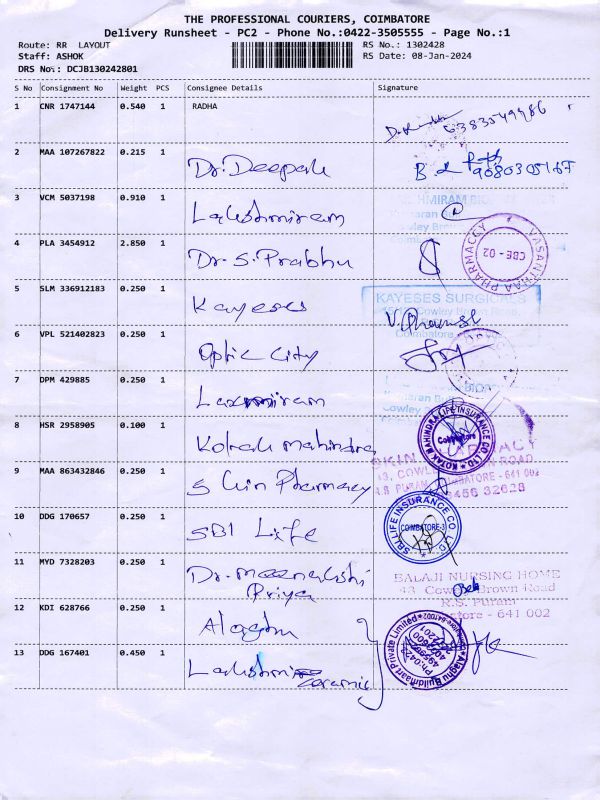 THE PROFESSIONAL COURIERS, COIMBATORE
Delivery Runsheet - PC2 - Phone No.:0422-3505555 - Page No.:1
Route: RR LAYOUT RS No.: 1302428
Staff: ASHOK RS Date: 08-Jan-2024
DRS No: DCJB130242801
S No Consignment No Weight PCS Consignee Details Signature
1 CNR 1747144 0.540 1 RADHA
2 MAA 107267822 0.215 1 Dr. Deepak
3 VCM 5037198 0.910 1 Lakshmiram
4 PLA 3454912 2.850 1 Dr. S. Prabhu
VASANTHAA PHARMACY
CBE - 02
5 SLM 336912183 0.250 1 Kayeses
KAYESES SURGICALS
6 VPL 521402823 0.250 1 Optic City
7 DPM 429885 0.250 1 Laxmiram
8 HSR 2958905 0.100 1 Kotak Mahindra
KOTAK MAHINDRA LIFE INSURANCE CO. LTD
Coimbatore
9 MAA 863432846 0.250 1 Skin Pharmacy
10 DDG 170657 0.250 1 SBI Life
SBI LIFE INSURANCE CO. LTD.
COIMBATORE-3
11 MYD 7328203 0.250 1 Dr. Meenakshi
Priya
BALAJI NURSING HOME
43 Cowley Brown Road
R.S. Puram
12 KDI 628766 0.250 1 Alaghu
Alaghu Buildmaart Private Limited
13 DDG 167401 0.450 1 Lakshmi
ceramic